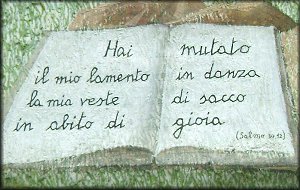 Hai mutato
il mio lamento in danza
la mia veste di sacco
in abito di gioia
(Salmo 30,12)